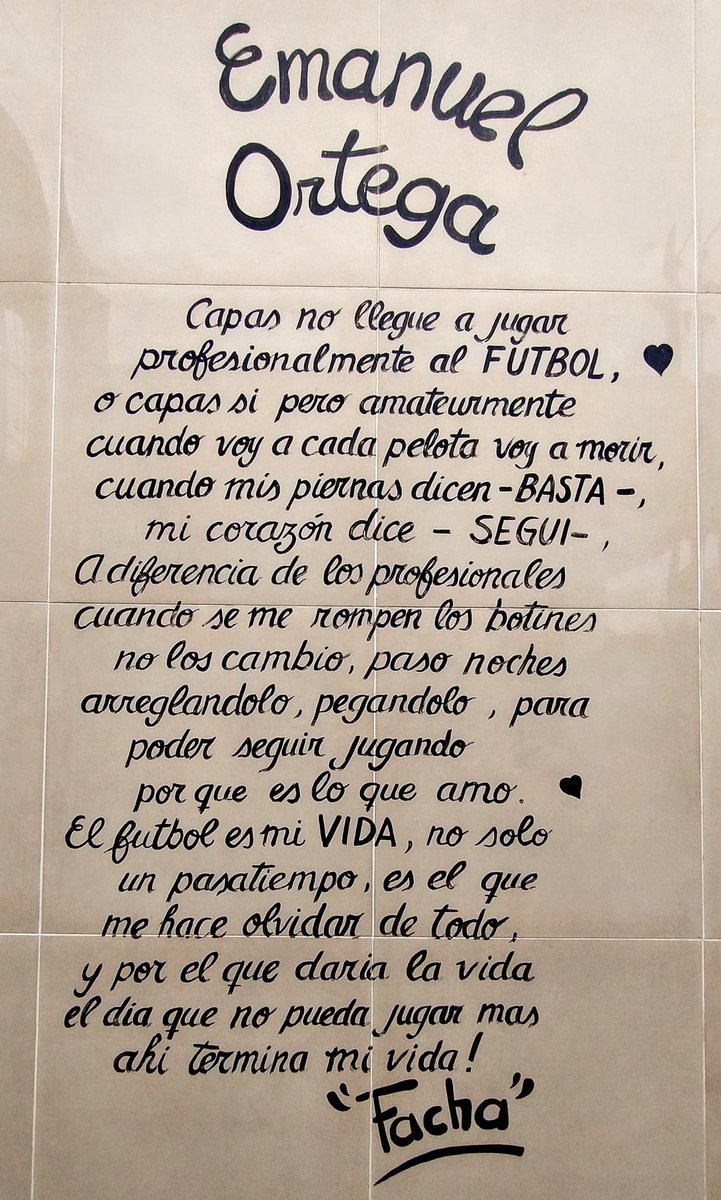 Emanuel
Ortega
Capas no llegue a jugar
profesionalmente al FUTBOL,
o capas si pero amateurmente
cuando voy a cada pelota voy a morir,
cuando mis piernas dicen -BASTA-,
mi corazón dice - SEGUI-,
A diferencia de los profesionales
cuando se me rompen los botines
no los cambio, paso noches
arreglandolo, pegandolo, para
poder seguir jugando
por que es lo que amo.
El futbol es mi VIDA, no solo
un pasatiempo, es el que
me hace olvidar de todo,
y por el que daria la vida
el dia que no pueda jugar mas
ahi termina mi vida!
"Facha"